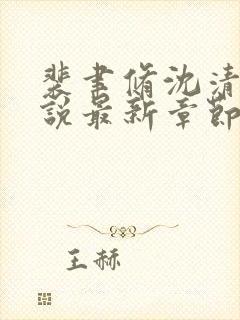 裴書脩沈清
說最新章節
王赫